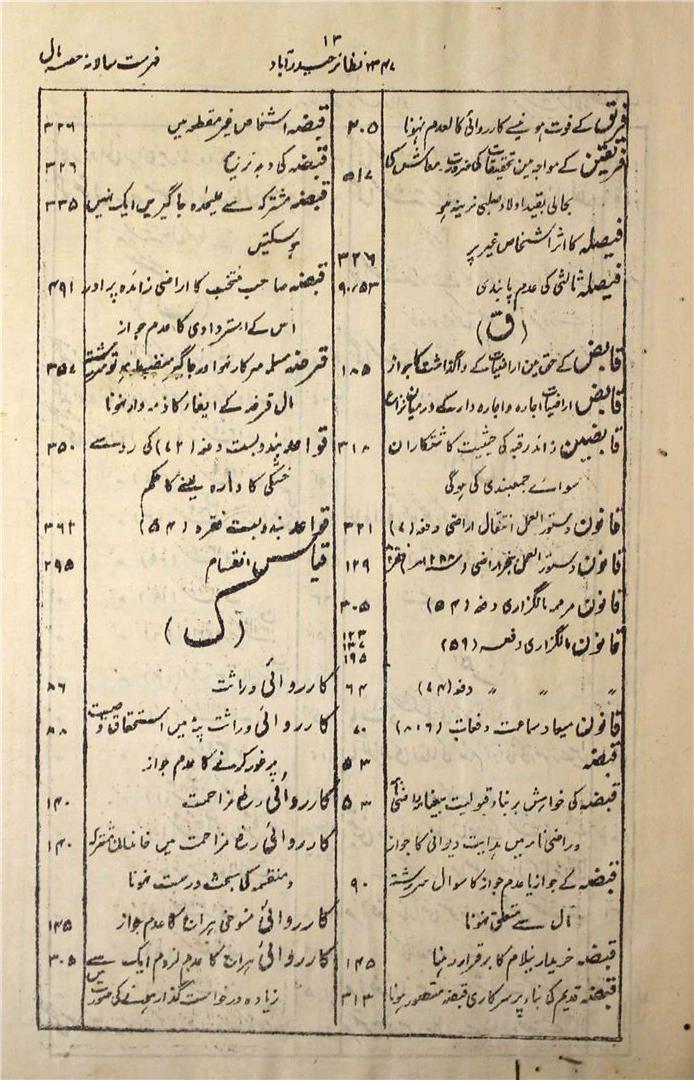 ۱۳
فہرست سالانہ حصہ مال
۱۳۴۷ نظائر حیدرآباد
فریق کے فوت ہونیسے کارروائی کالعدم نہونا ۳۰۵
فریقین کے مواجہ مین تحقیقات کی ضرورت معاش کی ۵۱۷
بحالی بقید اولاد صلبی نرینہ ہو
فیصلہ کا اثر اشخاص غیر پر ۳۲۶
فیصلہ ثالثی کی عدم پابندی ۹۰/۵۳
(ق)
قابض کے حق مین اراضیات کے واگذاشت کا جواز ۱۸۵
قابض اراضیات اجارہ و اجارہ دار کے درمیان نزاع
قابضین زائد رقبہ کی حیثیت کاشتکاران ۳۱۸
سوائے جمعبندی کی ہوگی
قانون دستور العمل انتقال اراضی دفعہ (۷) ۳۲۱
قانون دستور العمل بنجر اراضی ۱۲۹
قانون مالگزاری دفعہ (۵۴) ۳۰۵
قانون مالگزاری دفعہ (۵۹) ۱۲۳ ۱۳۷ ۱۹۵
〃 〃 〃 دفعہ (۷۴) ۶۴
قانون میعاد سماعت دفعات (۸،۱۶) ۷۰
قبضہ ۵۳
قبضہ کی خواہش بر بناء قبولیت ۵۳
وراضی نامہ میں ہدایت دیوانی کا جواز
قبضہ کے جواز یا عدم جواز کا سوال سررشتہ ۹۰
مال سے متعلق نہونا
قبضہ خریدار نیلام کا برقرار رہنا ۱۴۵
قبضہ قدیم کی بناء پر سرکاری قبضہ متصور ہونا ۳۱۳
قبضہ اشخاص غیر مقطعہ میں ۳۲۶
قبضہ کی وجہ ترجیح ۳۲۶
قبضہ مشترکہ سے علیحدہ جاگیریں ایک نہیں ۳۳۵
ہوسکتیں
قبضہ صاحب منتخب کا اراضی زائدہ پر اور ۴۹۱
اس کے استردادی کا عدم جواز
قرضہ مسلمہ سرکار نہو اور جاگیر منضبط ہو تو سررشتہ ۳۵۷
مال قرضہ کے ایفاء کا ذمہ دار نہونا
قواعد بندوبست دفعہ (۷۲) کی روسے ۳۵۰
خشکی کا دہارہ لینے کا حکم
قواعد بندوبست فقرہ (۵۴) ۳۶۲
قیاس انقسام ۲۹۵
(ک)
کارروائی وراثت ۸۶
کارروائی وراثت پٹہ میں استحقاق وصیت ۸۸
پر غور کرنے کا عدم جواز
کارروائی رفع مزاحمت ۱۴۰
کارروائی رفع مزاحمت میں خاندان مشترکہ ۱۴۰
ومنقسم کی بحث درست نہونا
کارروائی منسوخی ہراج کا عدم جواز ۱۴۵
کارروائی ہراج کا عدم لزوم ایک سے ۳۰۵
زیادہ درخواست گذار ہونے کی صورت میں